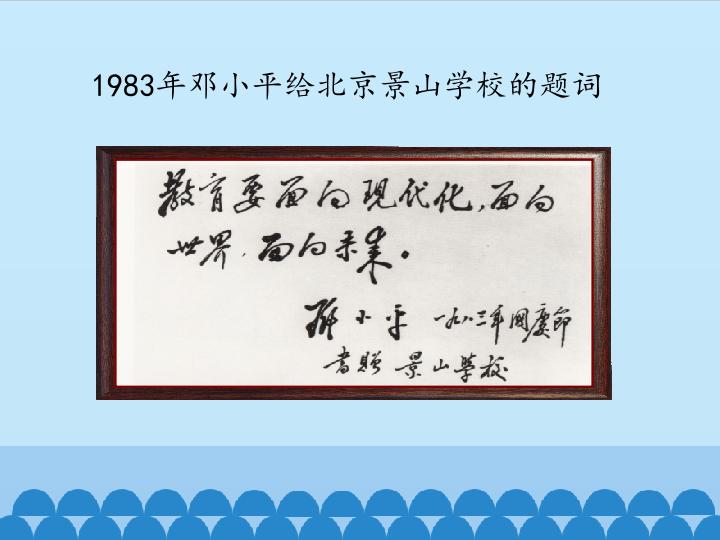 1983年邓小平给北京景山学校的题词
教育要面向现代化,面向
世界,面向未来。
邓小平 一九八三年國慶節
書贈 景山學校